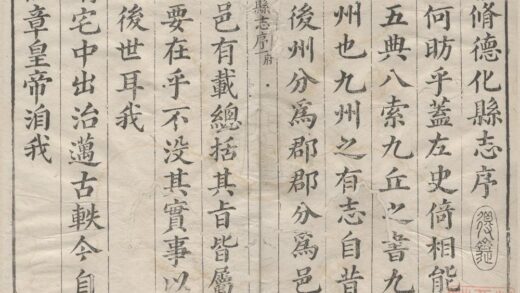 脩德化縣志序
何昉乎蓋左史倚相能
五典八索九丘之書九
州也九州之有志自昔
後州分爲郡郡分爲邑
縣志序
邑有載總括其㫖皆屬
要在乎不没其實事以
後世耳我
宅中出治邁古軼今自
章皇帝洎我